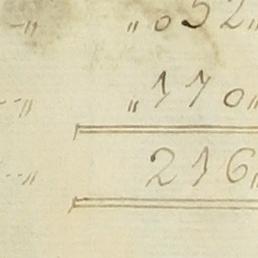 -„ „052„
--„ „170„
--„ 216„